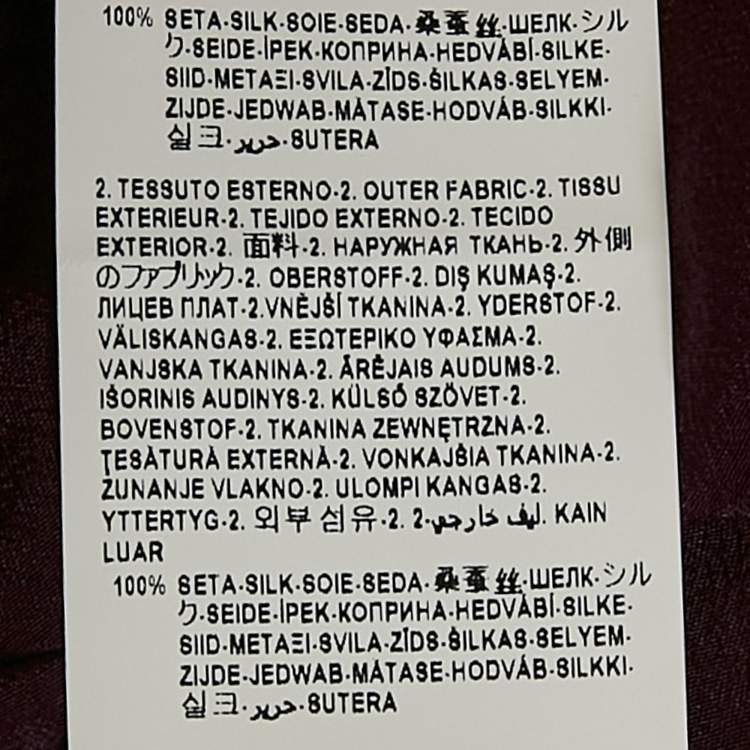 100% SETA-SILK-SOIE-SEDA-桑蚕丝-ШЕЛК-シル
ク-SEIDE-İPEK-КОПРИНА-HEDVÁBÍ-SILKE-
SIID-ΜΕΤΑΞΙ-SVILA-ZĪDS-ŠILKAS-SELYEM-
ZIJDE-JEDWAB-MĂTASE-HODVÁB-SILKKI-
실크-حرير-SUTERA
2. TESSUTO ESTERNO-2. OUTER FABRIC-2. TISSU
EXTERIEUR-2. TEJIDO EXTERNO-2. TECIDO
EXTERIOR-2. 面料-2. НАРУЖНАЯ ТКАНЬ-2. 外側
のファブリック-2. OBERSTOFF-2. DIŞ KUMAŞ-2.
ЛИЦЕВ ПЛАТ-2.VNĚJŠÍ TKANINA-2. YDERSTOF-2.
VÄLISKANGAS-2. ΕΞΩΤΕΡΙΚΟ ΥΦΑΣΜΑ-2.
VANJSKA TKANINA-2. ĀRĒJAIS AUDUMS-2.
IŠORINIS AUDINYS-2. KÜLSŐ SZÖVET-2.
BOVENSTOF-2. TKANINA ZEWNĘTRZNA-2.
ŢESĂTURĂ EXTERNĂ-2. VONKAJŠIA TKANINA-2.
ZUNANJE VLAKNO-2. ULOMPI KANGAS-2.
YTTERTYG-2. 외부 섬유-2. ليف خارجي-2. KAIN
LUAR
100% SETA-SILK-SOIE-SEDA-桑蚕丝-ШЕЛК-シル
ク-SEIDE-İPEK-КОПРИНА-HEDVÁBÍ-SILKE-
SIID-ΜΕΤΑΞΙ-SVILA-ZĪDS-ŠILKAS-SELYEM-
ZIJDE-JEDWAB-MĂTASE-HODVÁB-SILKKI-
실크-حرير-SUTERA